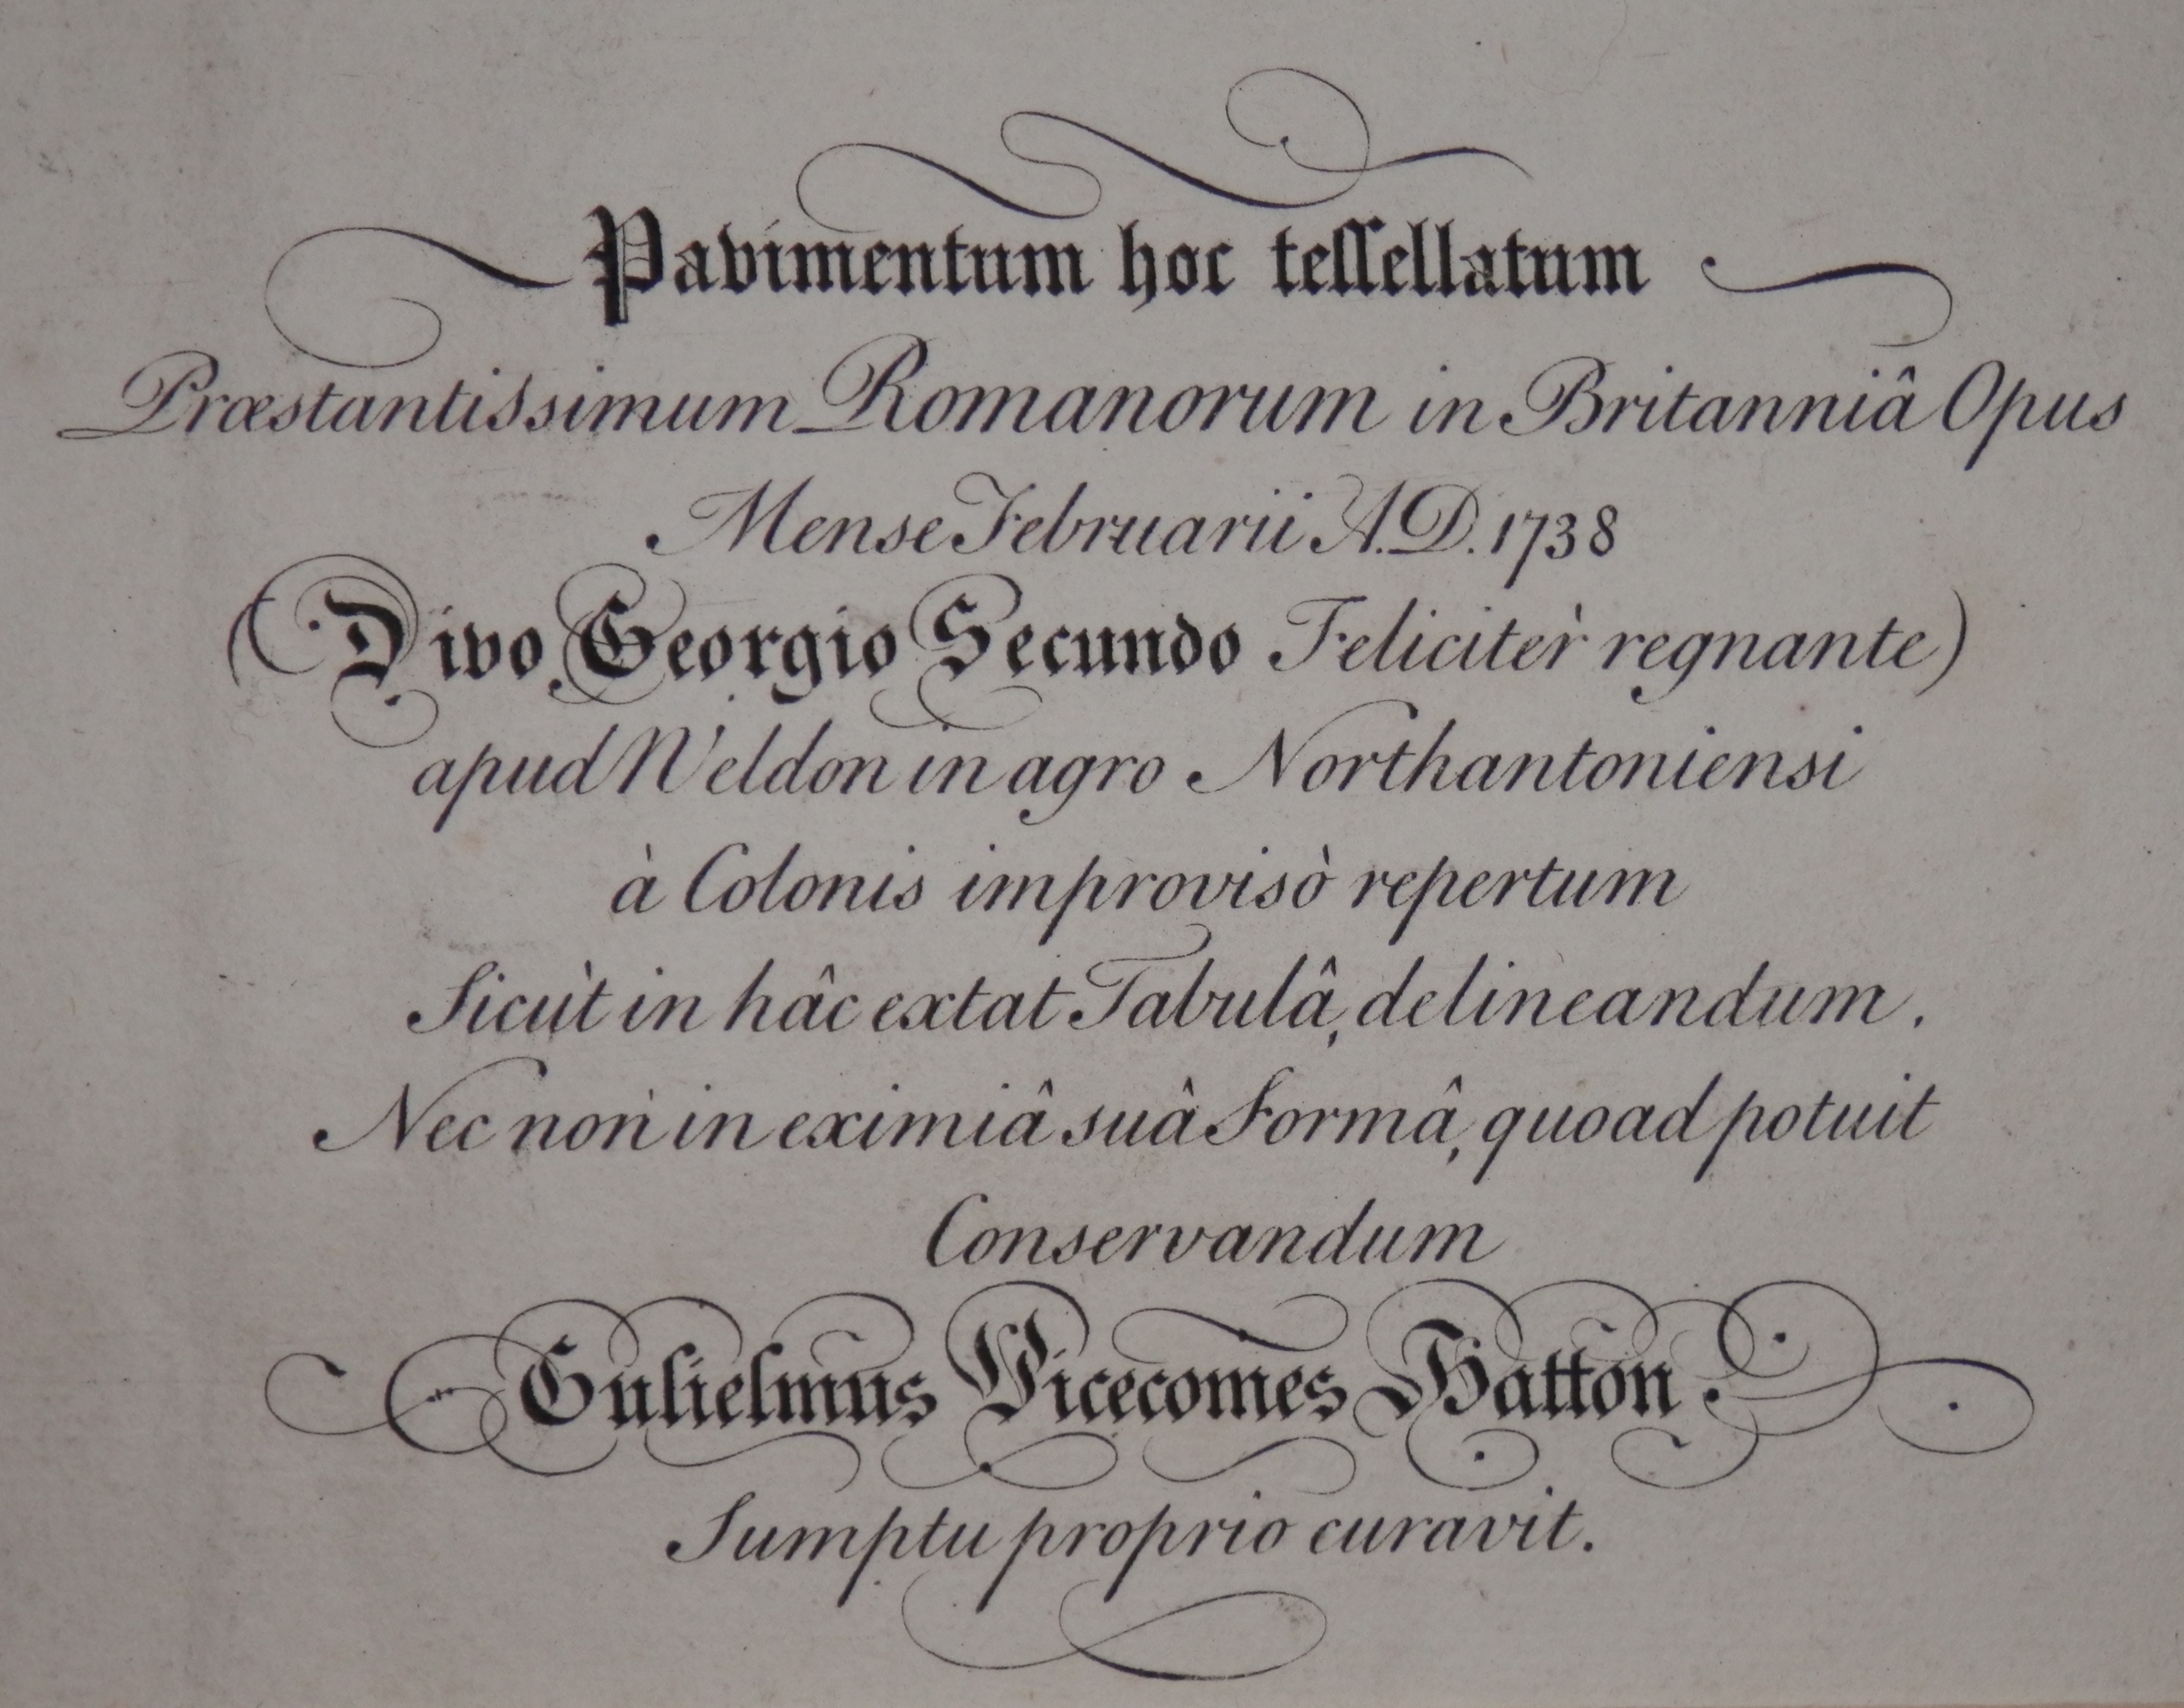 Pavimentum hoc teſſellatum
Præstantissimum Romanorum in Britanniâ Opus
Mense Februarii A.D. 1738
(Divo Georgio Secundo Feliciter̀ regnante)
apud Weldon in agro Northantoniensi
à Colonis improvisò repertum
Sicùt in hâc extat Tabulâ, delineandum.
Nec non̓ in eximiâ suâ Formâ, quoad potuit
Conservandum
Gulielmus Vicecomes Hatton.
Sumptu proprio curavit.